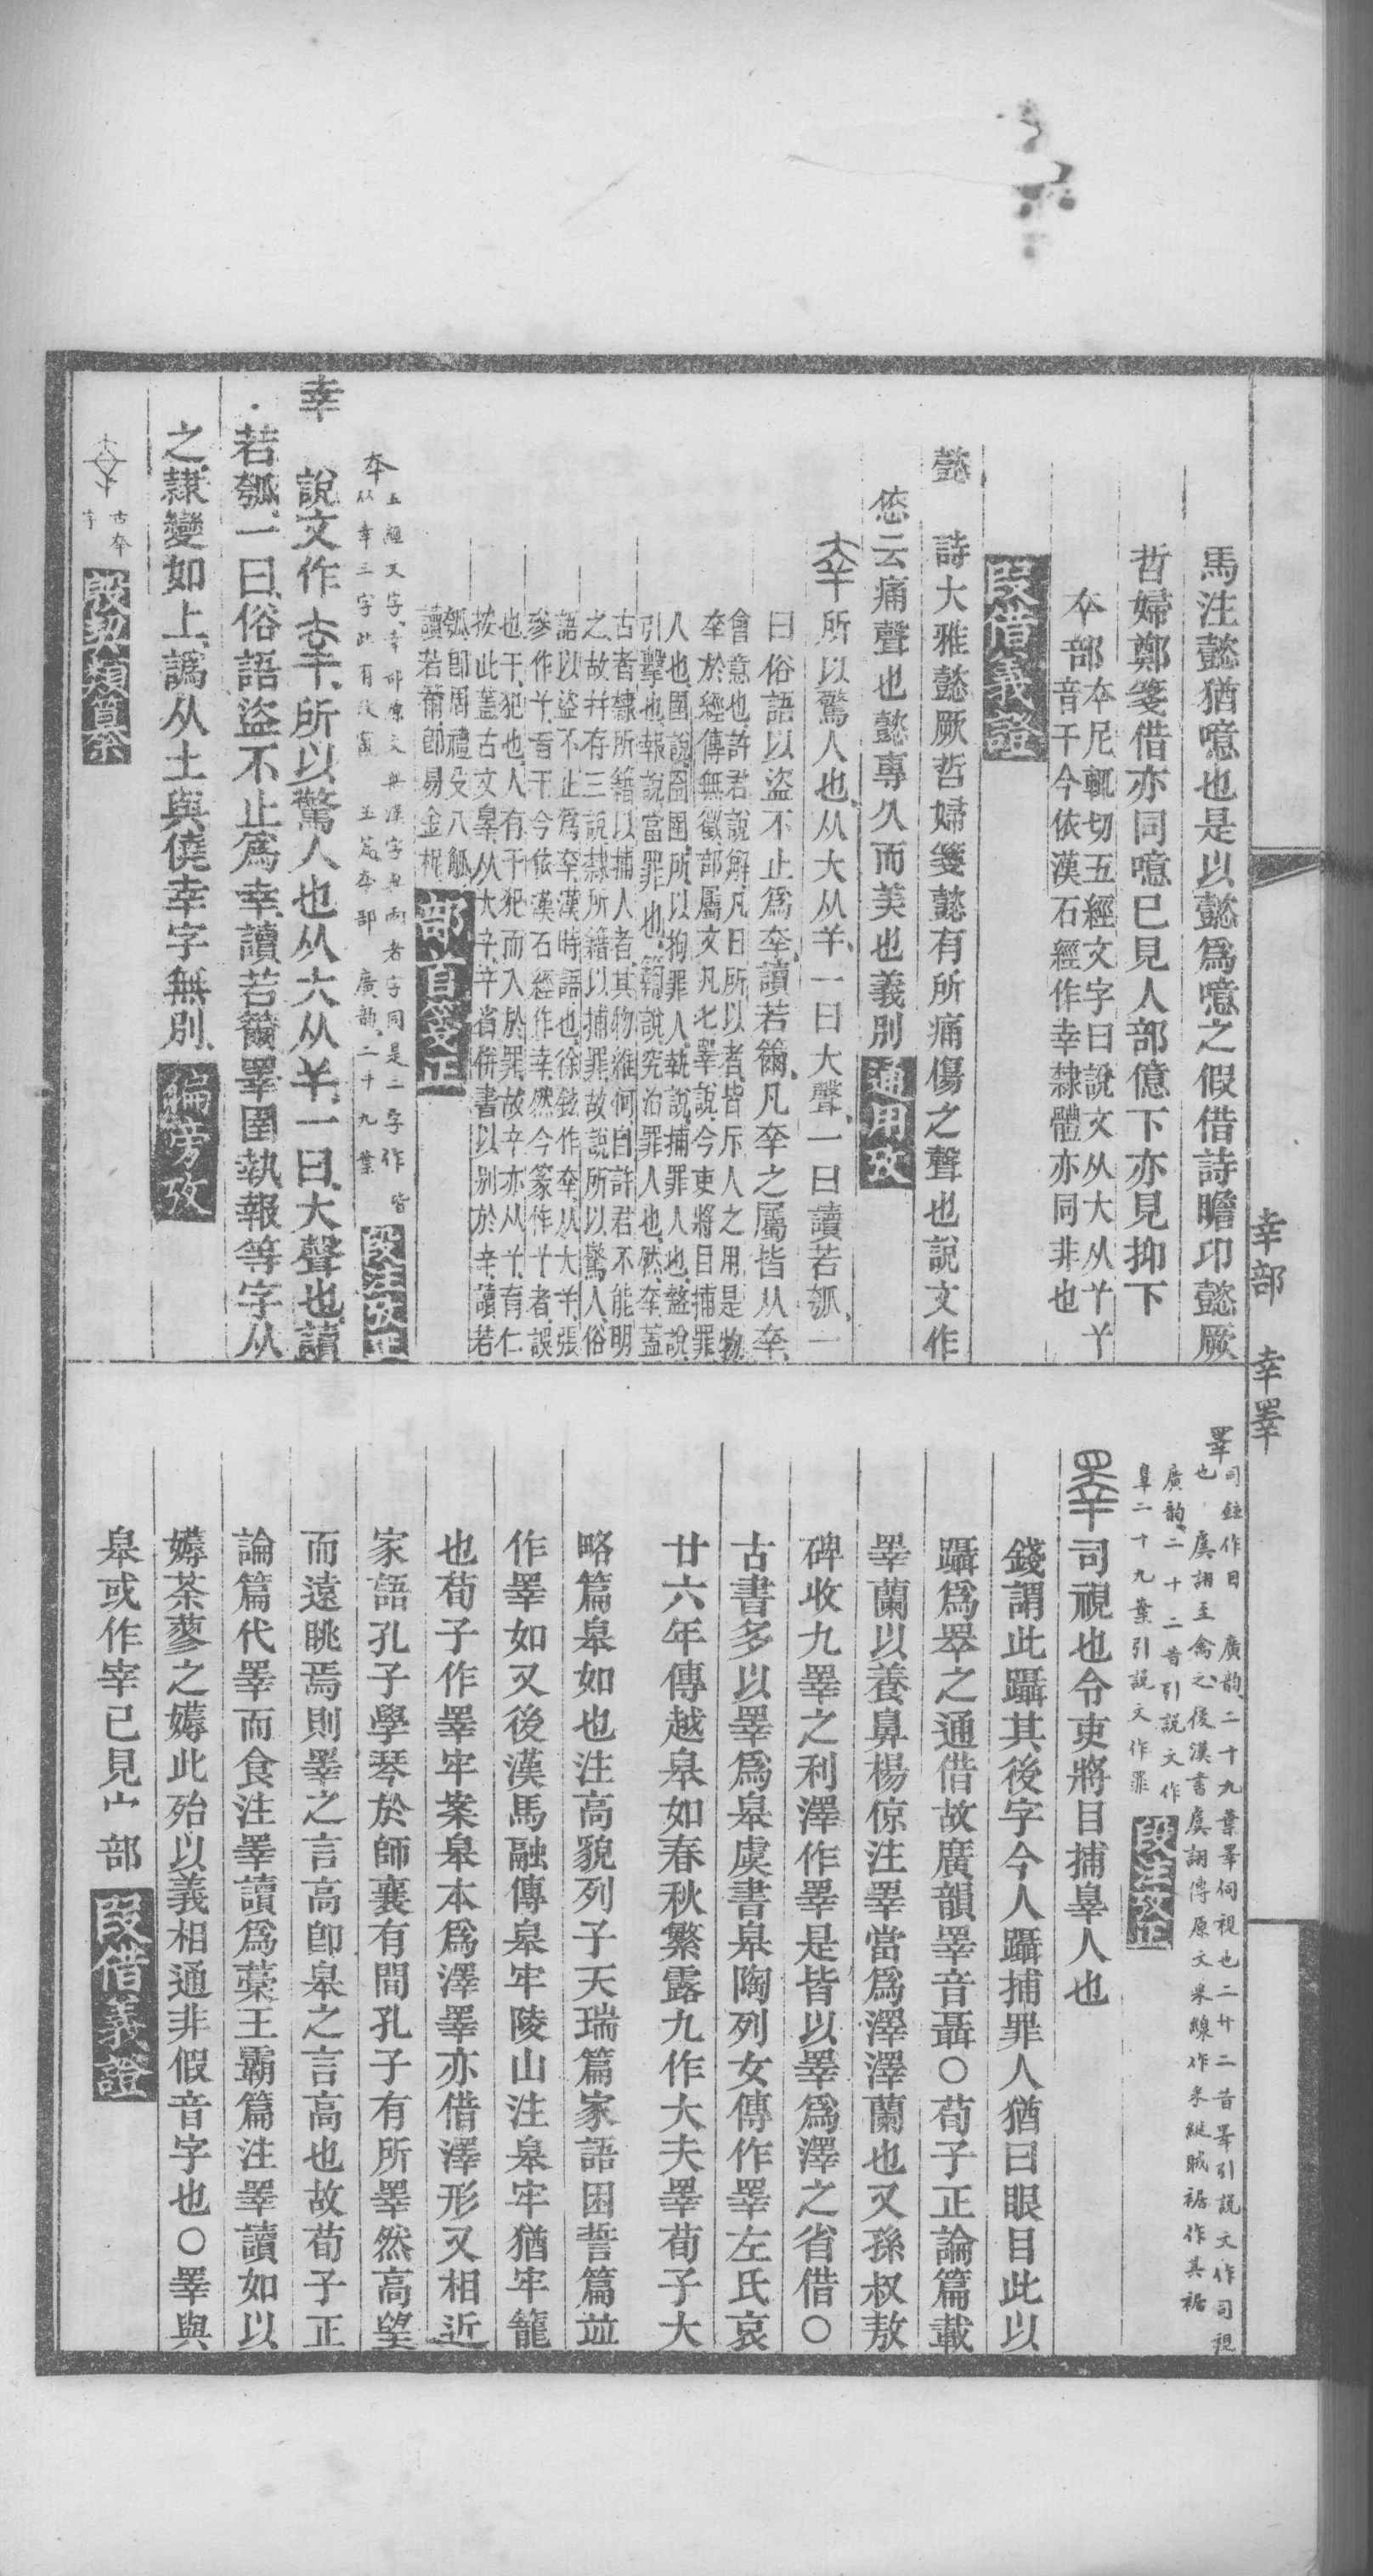 馬注懿猶噫也是以懿爲噫之假借詩瞻卬懿厥
哲婦鄭箋借亦同噫已見人部億下亦見抑下
㚔部㚔尼輒切五經文字曰說文从大从𢆉𢆉
音干今依漢石經作幸隸體亦同非也
段借義證
懿 詩大雅懿厥哲婦箋懿有所痛傷之聲也說文作
㤅云痛聲也懿專久而美也義別 通用攷
㚔所以驚人也从大从𢆉一曰大聲一曰讀若瓠一
曰俗語以盜不止爲㚔讀若籋凡㚔之屬皆从㚔
會意也許君說解凡曰所以者皆斥人之用是物
㚔於經傳無徵部屬文凡七睪說今吏將目捕罪
人也圉說囹圉所以拘罪人執說捕罪人也盩說
引擊也報說當罪也𥷚說究治罪人也然㚔蓋
古者隸所籍以捕人者其物維何自許君不能明
之故幷存三說隸所籍以捕罪故說所以驚人俗
語以盜不止爲㚔漢時語也徐鉉作㚔从大𢆉張
參作𢆉音干今依漢石經作幸然今篆作𢆉者誤
也干犯也人有干犯而入於罪故㚔亦从𢆉有仁
按此蓋古文辠从大辛辛省併書以別於幸讀若
瓠卽周禮殳八觚
讀若籋卽易金柅 部首箋正
五經文字幸部
玉篇㚔部 廣韵二十九葉 段注攷正
幸 說文作㚔所以驚人也从大从𢆉一曰大聲也讀
若瓠一曰俗語盜不止爲幸讀若籋睪圉執報等字从
之隸變如上譌从土與僥幸字無別 偏旁攷
古㚔字 殷契類纂
幸部 幸睪
睪 司鉉作目 廣韵二十九葉睪伺視也二十二昔睪引說文作司視
也 虞詡至禽之後漢書虞詡傳原文采線作采綖賊裾作其裾
廣韵二十二昔引說文作
辠二十九葉引說文作罪 段注攷正
睪司視也令吏將目捕辠人也
錢謂此躡其後字今人躡捕罪人猶曰眼目此以
躡爲睪之通借故廣韻睪音聶○荀子正論篇載
睪蘭以養鼻楊倞注睪當爲澤澤蘭也又孫叔敖
碑收九睪之利澤作睪是皆以睪爲澤之省借○
古書多以睪爲皋虞書皋陶列女傳作睪左氏哀
廿六年傳越皋如春秋繁露九作大夫睪荀子大
略篇皋如也注高貌列子天瑞篇家語困誓篇竝
作睪如又後漢馬融傳皋牢陵山注皋牢猶牢籠
也荀子作睪牢案皋本爲澤睪亦借澤形又相近
家語孔子學琴於師襄有間孔子有所睪然高望
而遠眺焉則睪之言高卽皋之言高也故荀子正
論篇代睪而食注睪讀爲藁王霸篇注睪讀如以
薅荼蓼之薅此殆以義相通非假音字也○睪與
皋或作宰已見宀部 段借義證